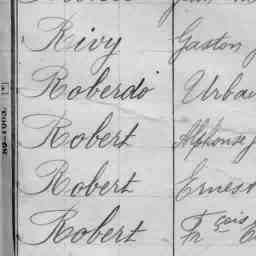 Rivy Gaston
Roberdo Urbai
Robert Alphonse J
Robert Ernest
Robert Fçois E